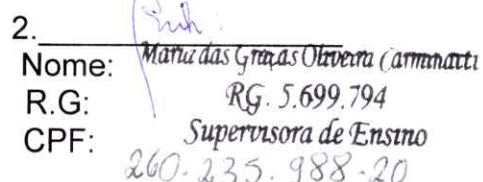 2.
Nome: Maria das Graças Oliveira Carminatti
R.G: RG. 5.699.794
CPF: Supervisora de Ensino
260.235.988-20